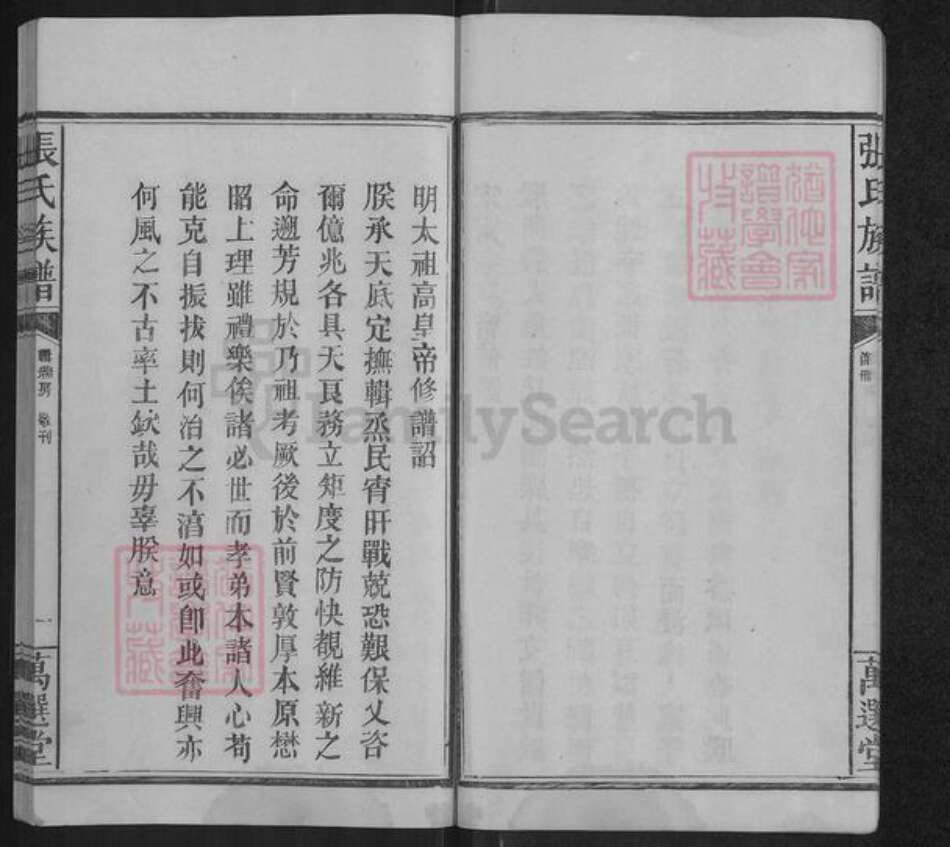 張氏族譜
首卷
萬選堂
猶他家譜學會收藏
明太祖高皇帝修譜詔
朕承天底定撫輯烝民宵旰戰兢恐艱保乂咨
爾億兆各具天良務立矩度之防快覩維新之
命遡芳規於乃祖考厥後於前賢敦厚本原懋
昭上理雖禮樂俟諸必世而孝弟本諸人心苟
能克自振拔則何治之不滈如或卽此奮興亦
何風之不古率土欽哉毋辜朕意
張氏族譜
房 敬刊
一
萬選堂
猶他家譜學會收藏
FamilySearch